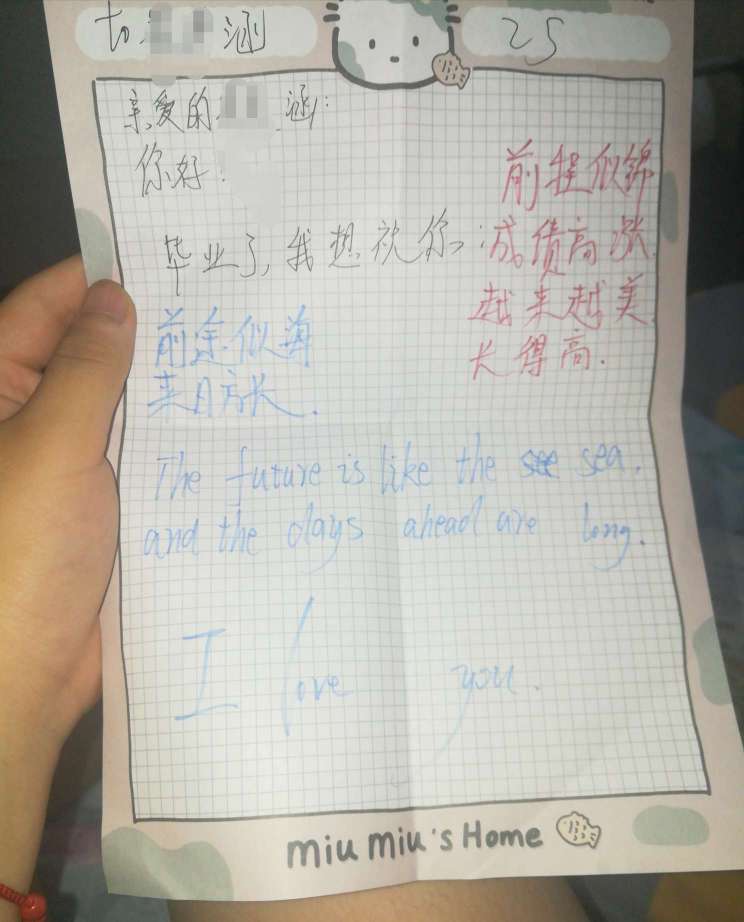 to 涵
25
亲爱的 涵:
你好:
毕业了,我想祝你:
前程似锦
成绩高涨
越来越美
长得高.
前途似海
来日方长.
The future is like the sea,
and the days ahead are long.
I love you.
miu miu's Home